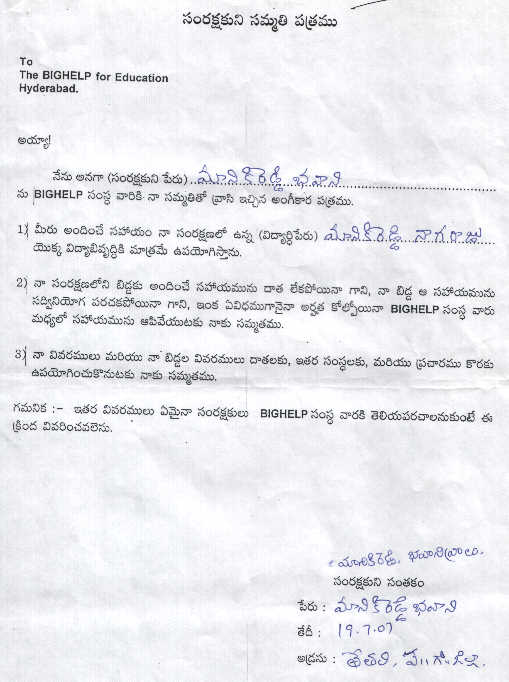 సంరక్షకుని సమ్మతి పత్రము
To
The BIGHELP for Education
Hyderabad.
అయ్యా!
నేను అనగా (సంరక్షకుని పేరు) మానికిరెడ్డి భవాని
ను BIGHELP సంస్థ వారికి నా సమ్మతితో వ్రాసి ఇచ్చిన అంగీకార పత్రము.
1) మీరు అందించే సహాయం నా సంరక్షణలో ఉన్న (విద్యార్థిపేరు) మానికిరెడ్డి నాగరాజు
యొక్క విద్యాభివృద్ధికి మాత్రమే ఉపయోగిస్తాను.
2) నా సంరక్షణలోని బిడ్డకు అందించే సహాయమును దాత లేకపోయినా గాని, నా బిడ్డ ఆ సహాయమును
సద్వినియోగ పరచకపోయినా గాని, ఇంక ఏవిధముగానైనా అర్హత కోల్పోయినా BIGHELP సంస్థ వారు
మధ్యలో సహాయమును ఆపివేయుటకు నాకు సమ్మతము.
3) నా వివరములు మరియు నా బిడ్డల వివరములు దాతలకు, ఇతర సంస్థలకు, మరియు ప్రచారము కొరకు
ఉపయోగించుకొనుటకు నాకు సమ్మతము.
గమనిక :- ఇతర వివరములు ఏమైనా సంరక్షకులు BIGHELP సంస్థ వారకి తెలియపరచాలనుకుంటే ఈ
క్రింద వివరించవలెను.
మానికిరెడ్డి. భవానివ్రాలు.
సంరక్షకుని సంతకం
పేరు : మానికిరెడ్డి భవాని
తేదీ : 19.7.07
అడ్రసు : తేతలి, ప॥గో.జిల్లా.